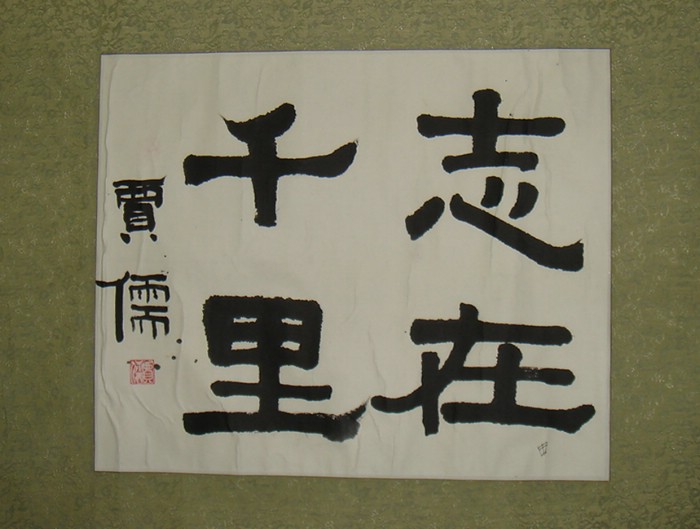 志在
千里
賈儒